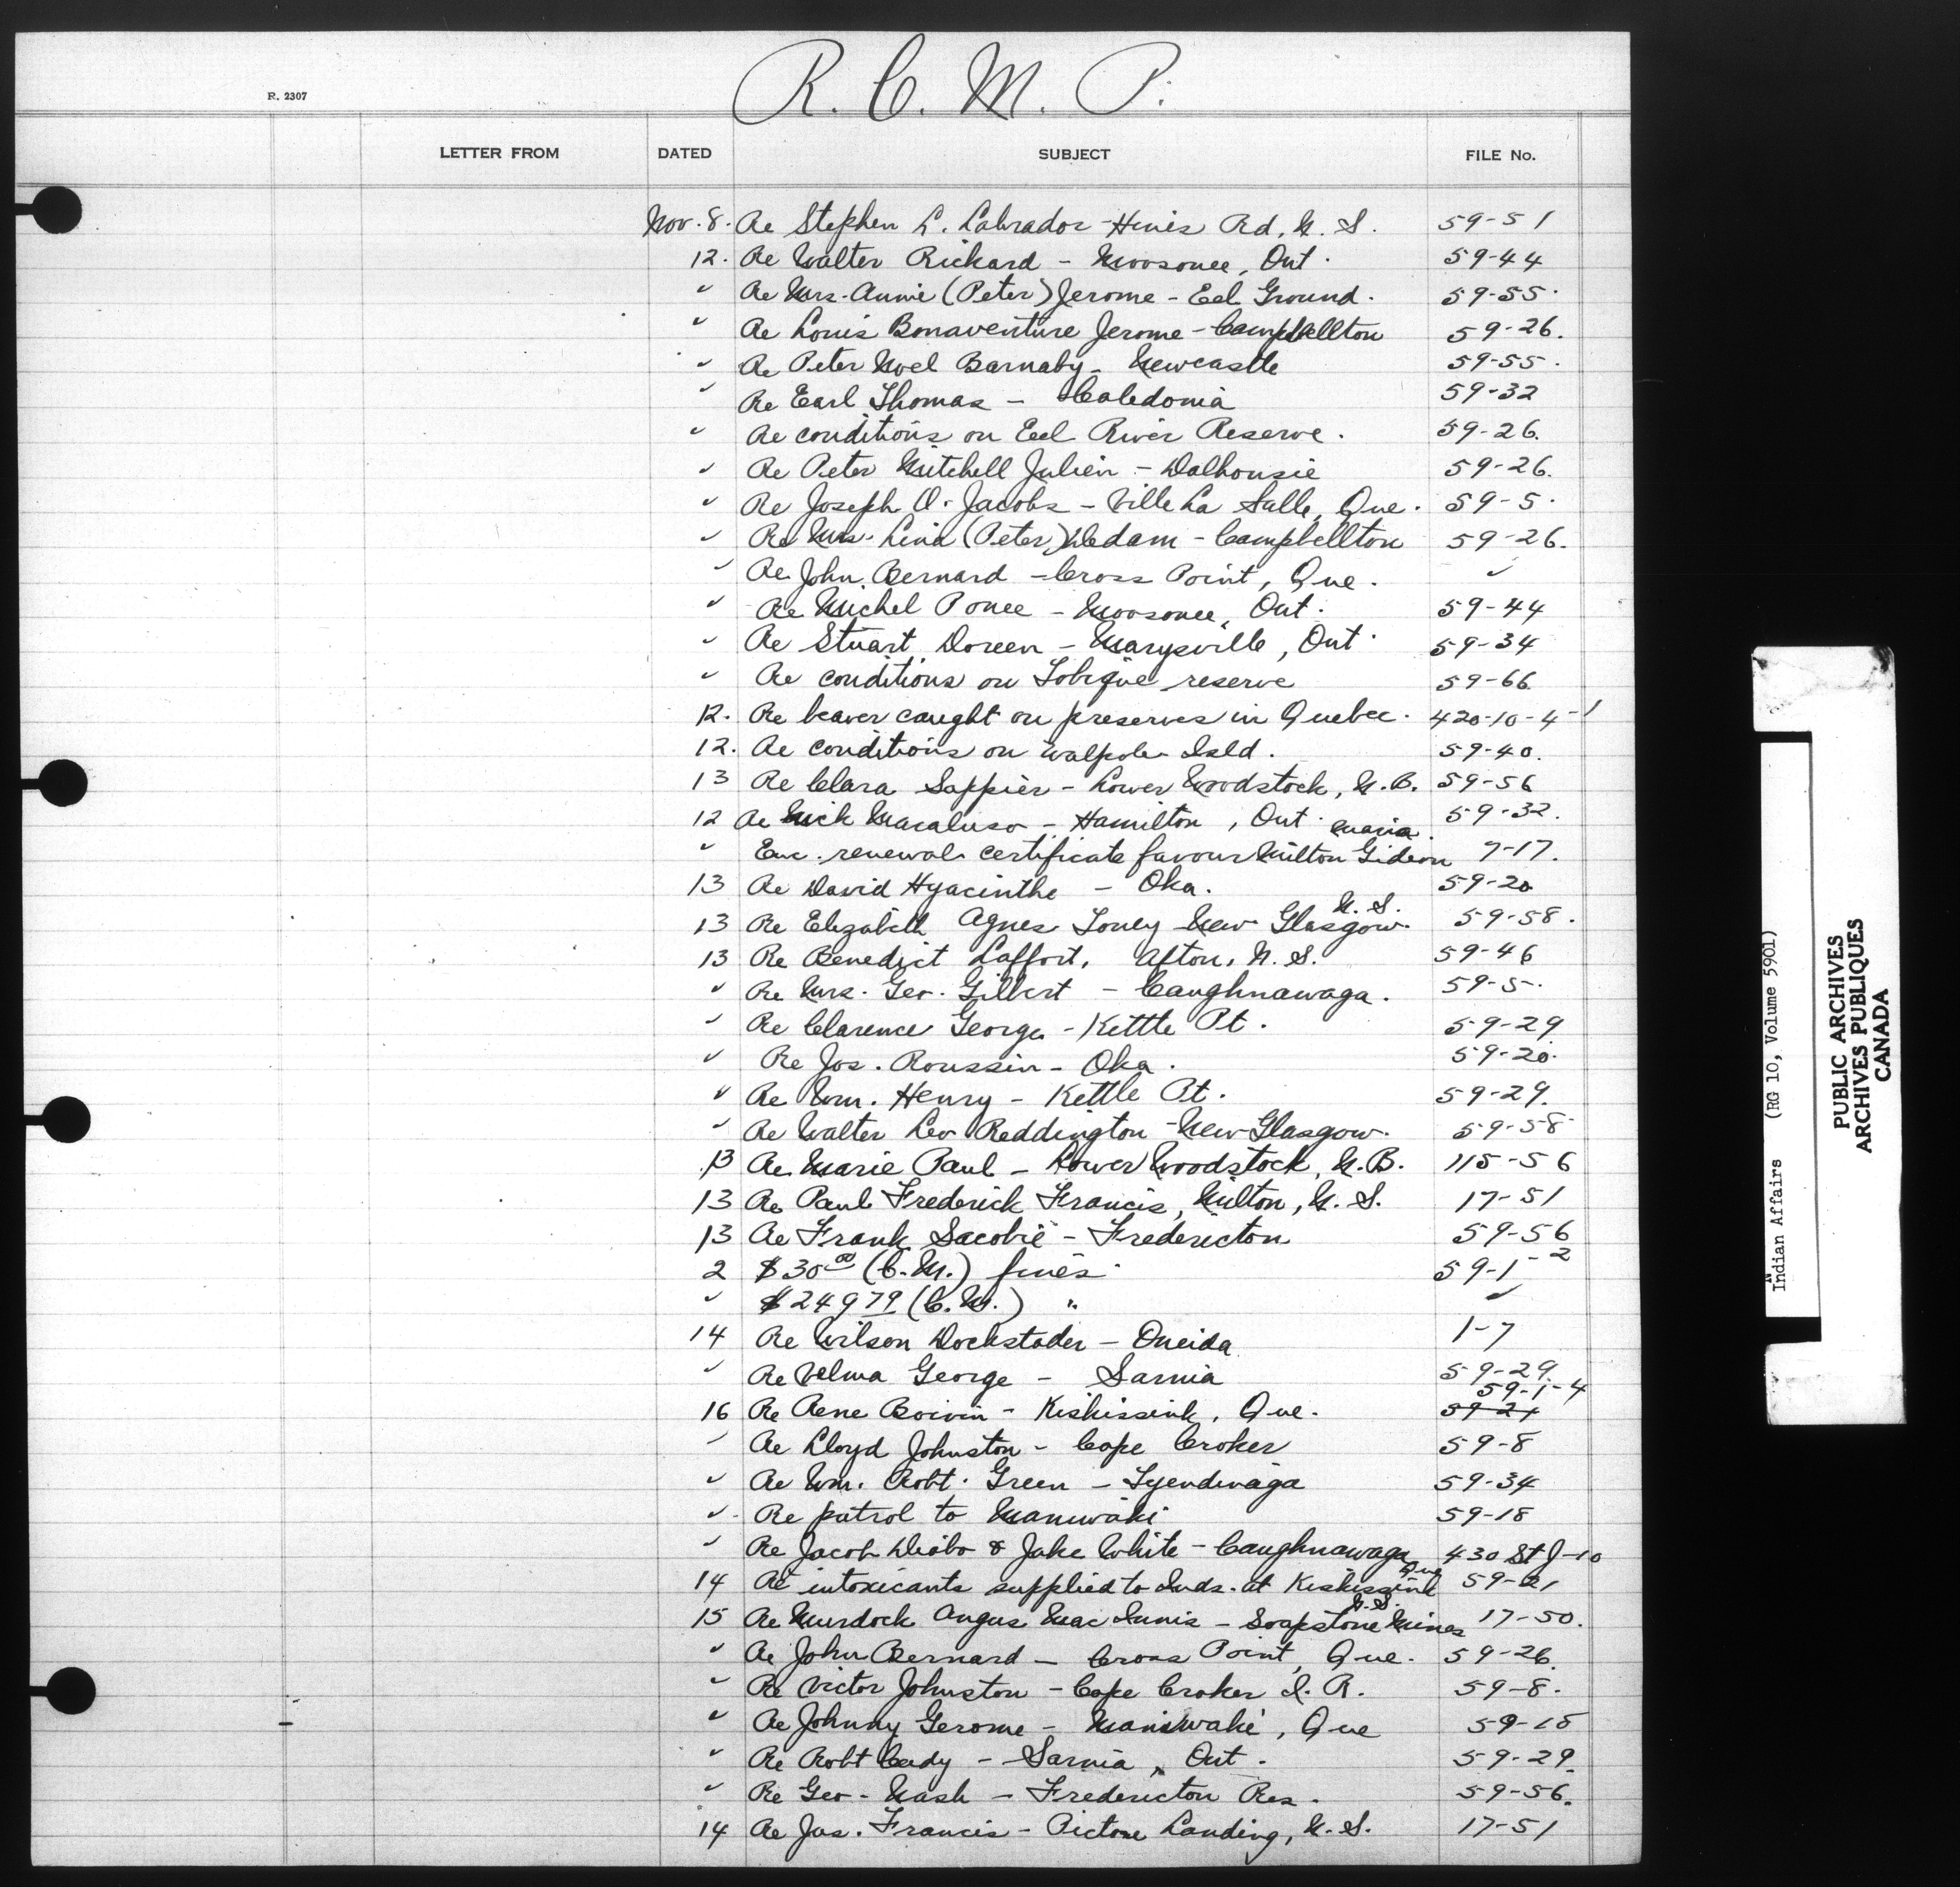 R. C. M. P.
R. 2307
LETTER FROM DATED SUBJECT FILE No.
Nov. 8. Re Stephen L. Labrador - Hines Rd, N. S. 59-51
12. Re Walter Rickard - Moosonee, Ont. 59-44
" Re Mrs. Annie (Peter) Jerome - Eel Ground. 59-55.
" Re Louis Bonaventure Jerome - Campbellton 59-26.
" Re Peter Noel Barnaby - Newcastle 59-55.
" Re Earl Thomas - Caledonia 59-32
" Re conditions on Eel River Reserve. 59-26.
" Re Peter Mitchell Julien - Dalhousie 59-26.
" Re Joseph O. Jacobs - Ville La Salle, Que. 59-5.
" Re Mrs. Lina (Peter) Dedam - Campbellton 59-26.
" Re John Bernard - Cross Point, Que. "
" Re Michel Ponee - Moosonee, Ont. 59-44
" Re Stuart Doreen - Marysville, Ont. 59-34
" Re conditions on Tobique reserve 59-66
12. Re beaver caught on preserves in Quebec. 420-10-4-1
12. Re conditions on Walpole Isld. 59-40.
13 Re Clara Sappier - Lower Woodstock, N.B. 59-56
12 Re Nick Macaluso - Hamilton, Ont. 59-32.
Maria.
" Enc. renewal certificate favour Milton Gideon 7-17.
13 Re David Hyacinthe - Oka. 59-20
N. S.
13 Re Elizabeth Agnes Toney New Glasgow. 59-58.
13 Re Benedict Laffort, Afton, N. S. 59-46
" Re Mrs. Geo. Gilbert - Caughnawaga. 59-5.
" Re Clarence George - Kettle Pt. 59-29
" Re Jos. Roussin - Oka. 59-20.
" Re Wm. Henry - Kettle Pt. 59-29.
" Re Walter Leo Reddington - New Glasgow. 59-58
13 Re Marie Paul - Lower Woodstock, N.B. 115-56
13 Re Paul Frederick Francis, Milton, N. S. 17-51
13 Re Frank Sacobie - Fredericton 59-56
2 $30 00 (C.M.) fines 59-1-2
" $249 79 (C.M.) " "
14 Re Wilson Dockstader - Oneida 1-7
" Re Velma George - Sarnia 59-29.
59-1-4
16 Re Rene Boivin - Kiskissink, Que. 59-21
" Re Lloyd Johnston - Cape Croker 59-8
" Re Wm. Robt. Green - Tyendinaga 59-34
" Re patrol to Maniwaki 59-18
" Re Jacob Diabo & Jake White - Caughnawaga 430 St J-10
Que
14 Re intoxicants supplied to Inds. at Kiskissink 59-21
N.S.
15 Re Murdock Angus MacInnis - Soapstone Mines 17-50.
" Re John Bernard - Cross Point, Que. 59-26.
" Re Victor Johnston - Cape Croker I. R. 59-8.
" Re Johnny Gerome - Maniwaki, Que 59-18
" Re Robt Cady - Sarnia, Ont. 59-29.
" Re Geo. Nash - Fredericton Res. 59-56.
14 Re Jas. Francis - Pictou Landing, N. S. 17-51
Indian Affairs (RG 10, Volume 5901)
PUBLIC ARCHIVES
ARCHIVES PUBLIQUES
CANADA